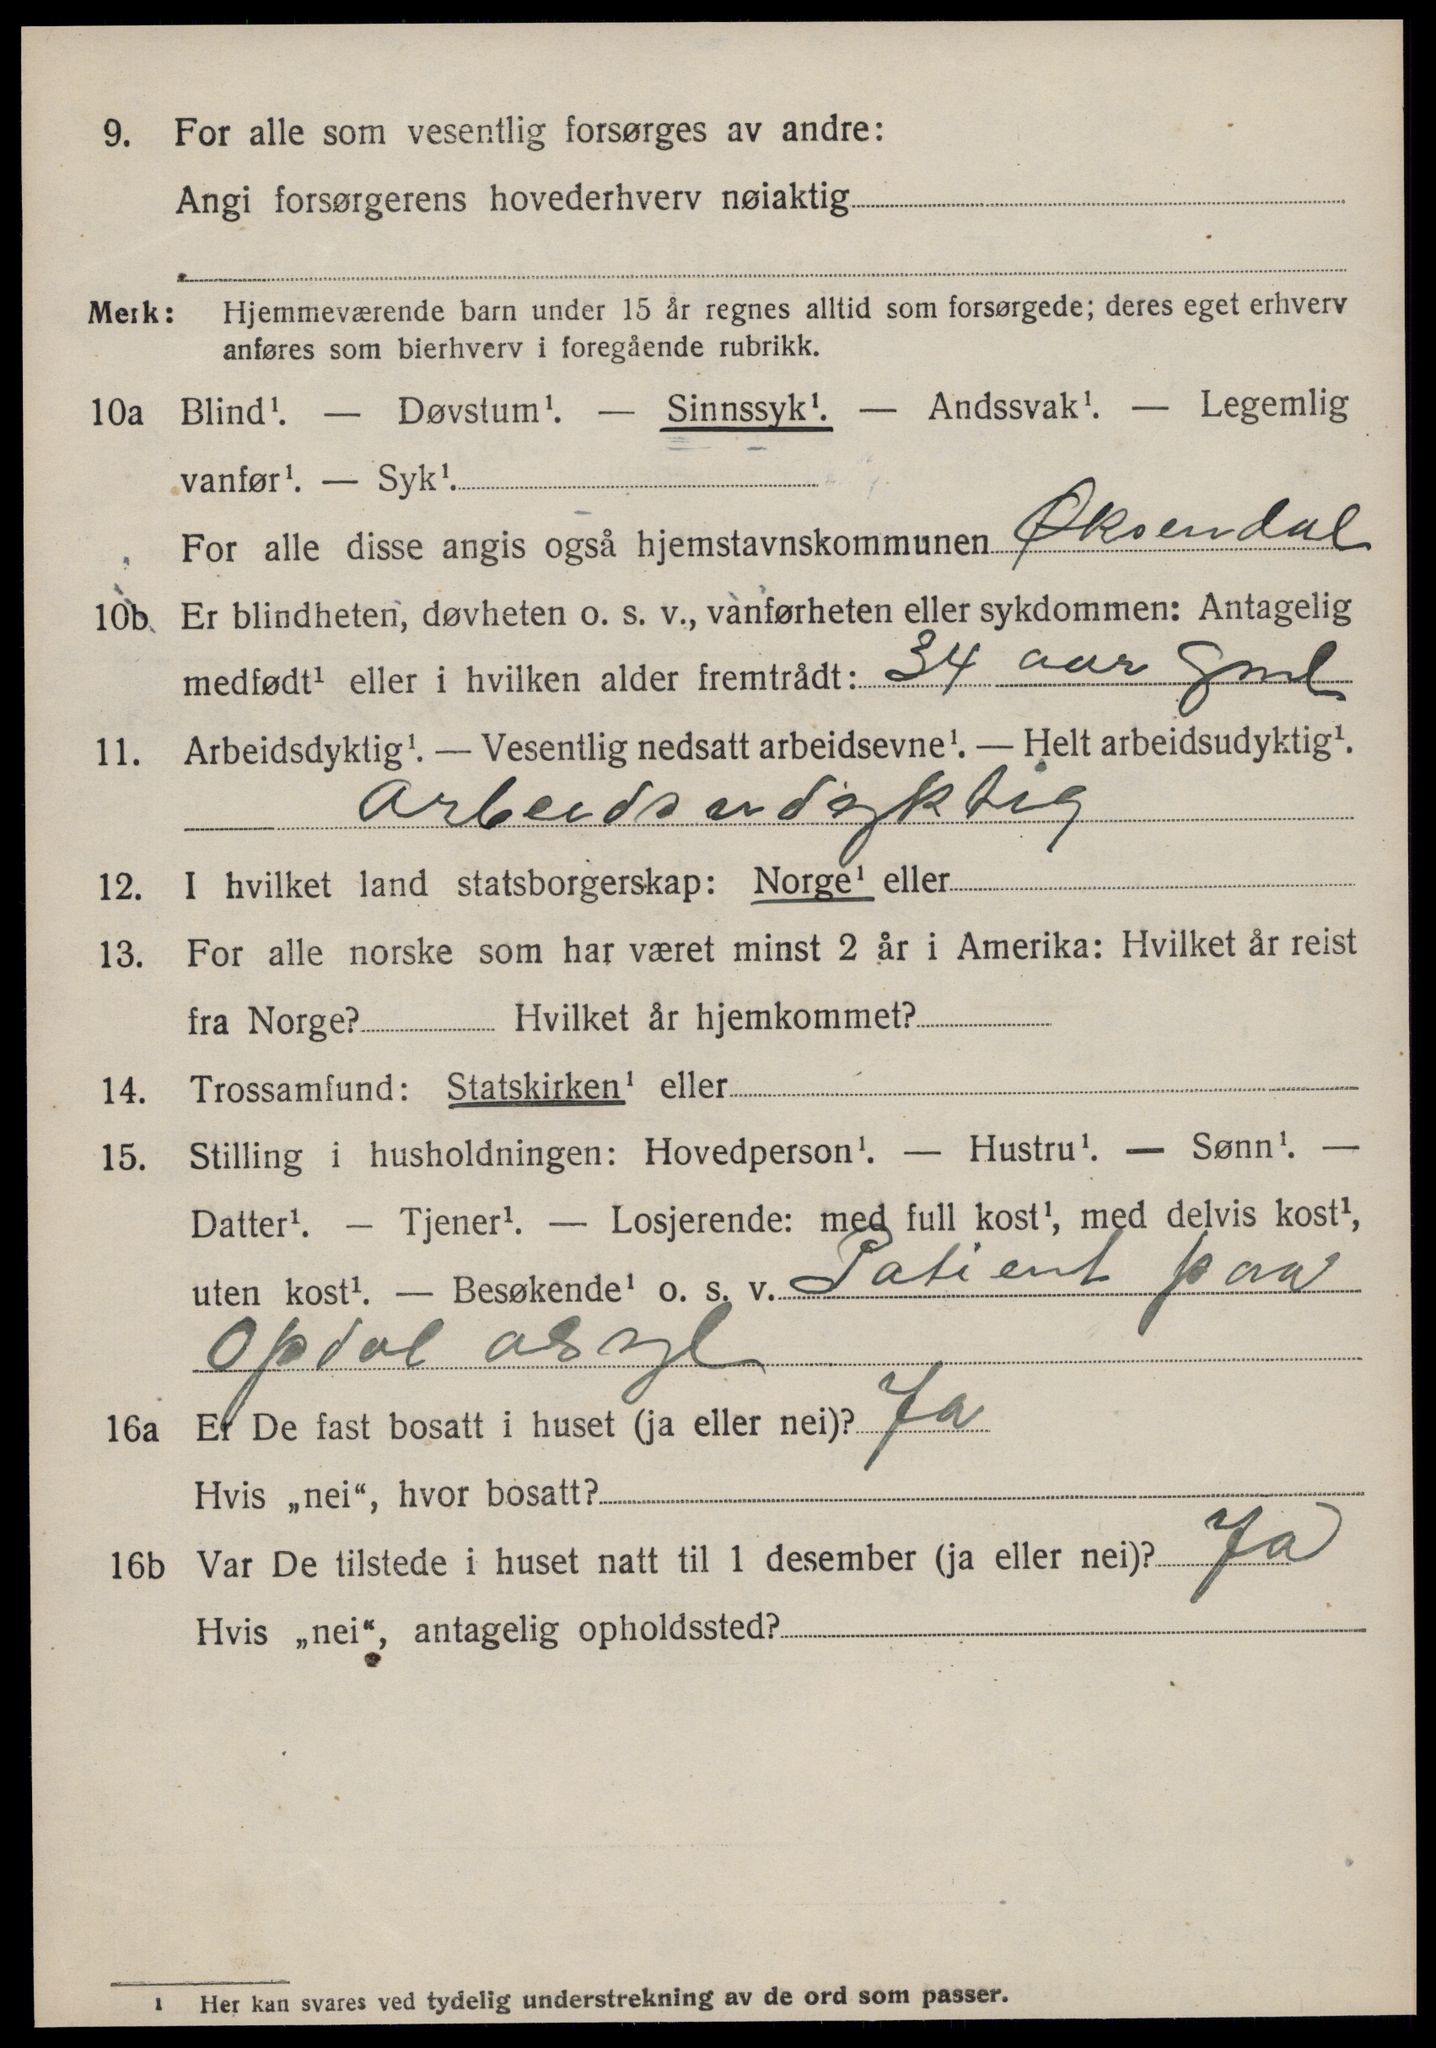 9. For alle som vesentlig forsørges av andre:
Angi forsørgerens hovederhverv nøiaktig
Merk: Hjemmeværende barn under 15 år regnes alltid som forsørgede; deres eget erhverv
anføres som bierhverv i foregående rubrikk.
10a Blind¹. — Døvstum¹. — Sinnssyk¹. — Andssvak¹. — Legemlig
vanfør¹. — Syk¹.
For alle disse angis også hjemstavnskommunen Øksendal
10b Er blindheten, døvheten o. s. v., vanførheten eller sykdommen: Antagelig
medfødt¹ eller i hvilken alder fremtrådt: 34 aar gml
11. Arbeidsdyktig¹. — Vesentlig nedsatt arbeidsevne¹. — Helt arbeidsudyktig¹.
Arbeidsudyktig
12. I hvilket land statsborgerskap: Norge¹ eller
13. For alle norske som har været minst 2 år i Amerika: Hvilket år reist
fra Norge? Hvilket år hjemkommet?
14. Trossamfund: Statskirken¹ eller
15. Stilling i husholdningen: Hovedperson¹. — Hustru¹. — Sønn¹. —
Datter¹. — Tjener¹. — Losjerende: med full kost¹, med delvis kost¹,
uten kost¹. — Besøkende¹ o. s. v. Patient paa
Opdal asyl
16a Er De fast bosatt i huset (ja eller nei)? Ja
Hvis „nei“, hvor bosatt?
16b Var De tilstede i huset natt til 1 desember (ja eller nei)? Ja
Hvis „nei“, antagelig opholdssted?
1 Her kan svares ved tydelig understrekning av de ord som passer.